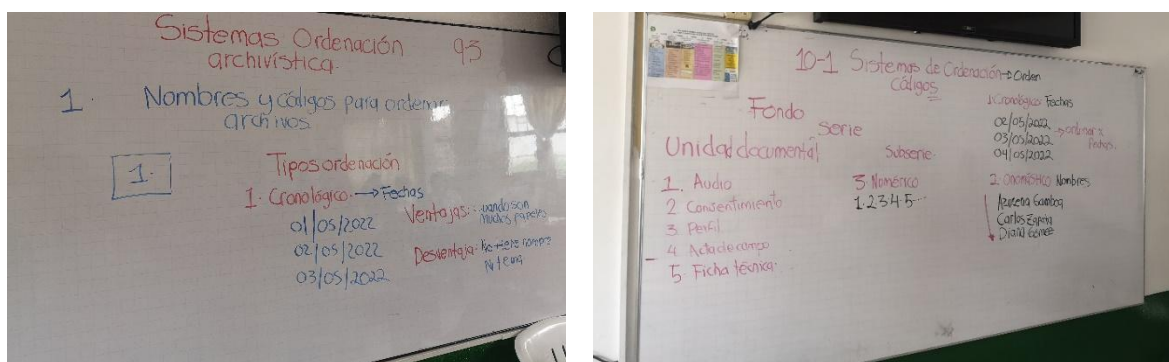 Sistemas Ordenación 93
archivística.
1. Nombres y códigos para ordenar
archivos
1.
Tipos ordenación
1. Cronológico → Fechas
01/05/2022
02/05/2022
03/05/2022
Ventajas: cuando son
muchos papeles
Desventaja: No tiene nombre
Ni tema
10-1 Sistemas de Ordenación → Orden
Códigos
Fondo
Serie
Subserie
Unidad documental
1. Audio
2 Consentimiento
3 Perfil
4 Acta de campo
5 Ficha técnica.
3 Numérico
1.2345...
1. Cronológico Fechas
02/05/2022
03/05/2022 → ordenar x
Fechas.
04/05/2022
2 Onomástico Nombres
Azucena Gamboa
Carlos Zapata
Diana Gómez